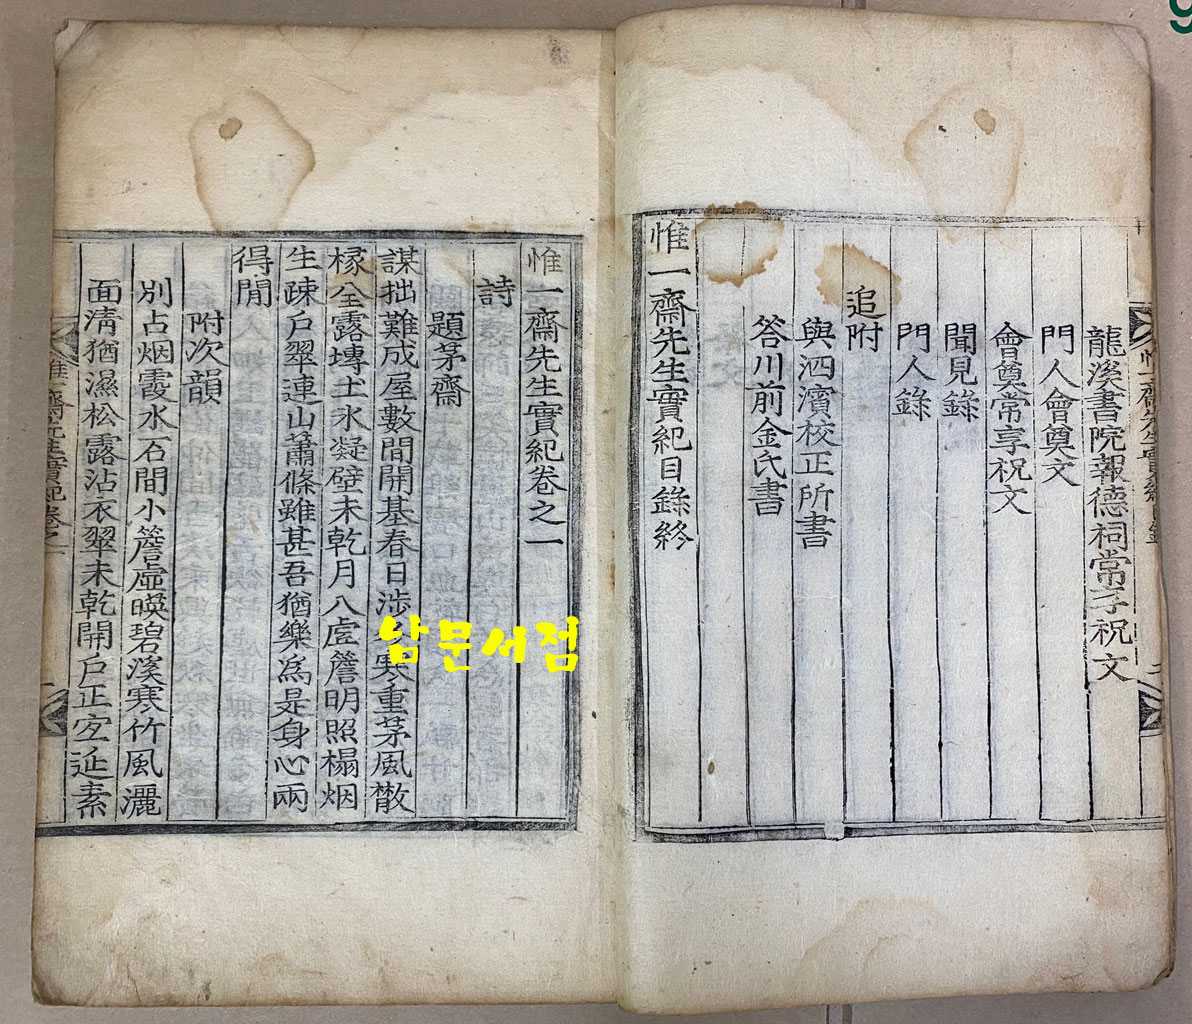 龍溪書院報德祠常享祝文
門人會奠文
會奠常享祝文
聞見錄
門人錄
追附
與泗濱校正所書
答川前金氏書
惟一齋先生實紀目錄終
惟一齋先生實紀卷之一
詩
題茅齋
謀拙難成屋數間開基春日涉冬寒重茅風散
椽全露塼土氷凝壁未乾月入虛簷明照榻烟
生疎戶翠連山蕭條雖甚吾猶樂爲是身心兩
得閒
附次韻
別占烟霞水石間小簷虛暎碧溪寒竹風灑
面淸猶濕松露沾衣翠未乾開戶正宜延素
惟一齋先生實紀卷之一
남문서점
9